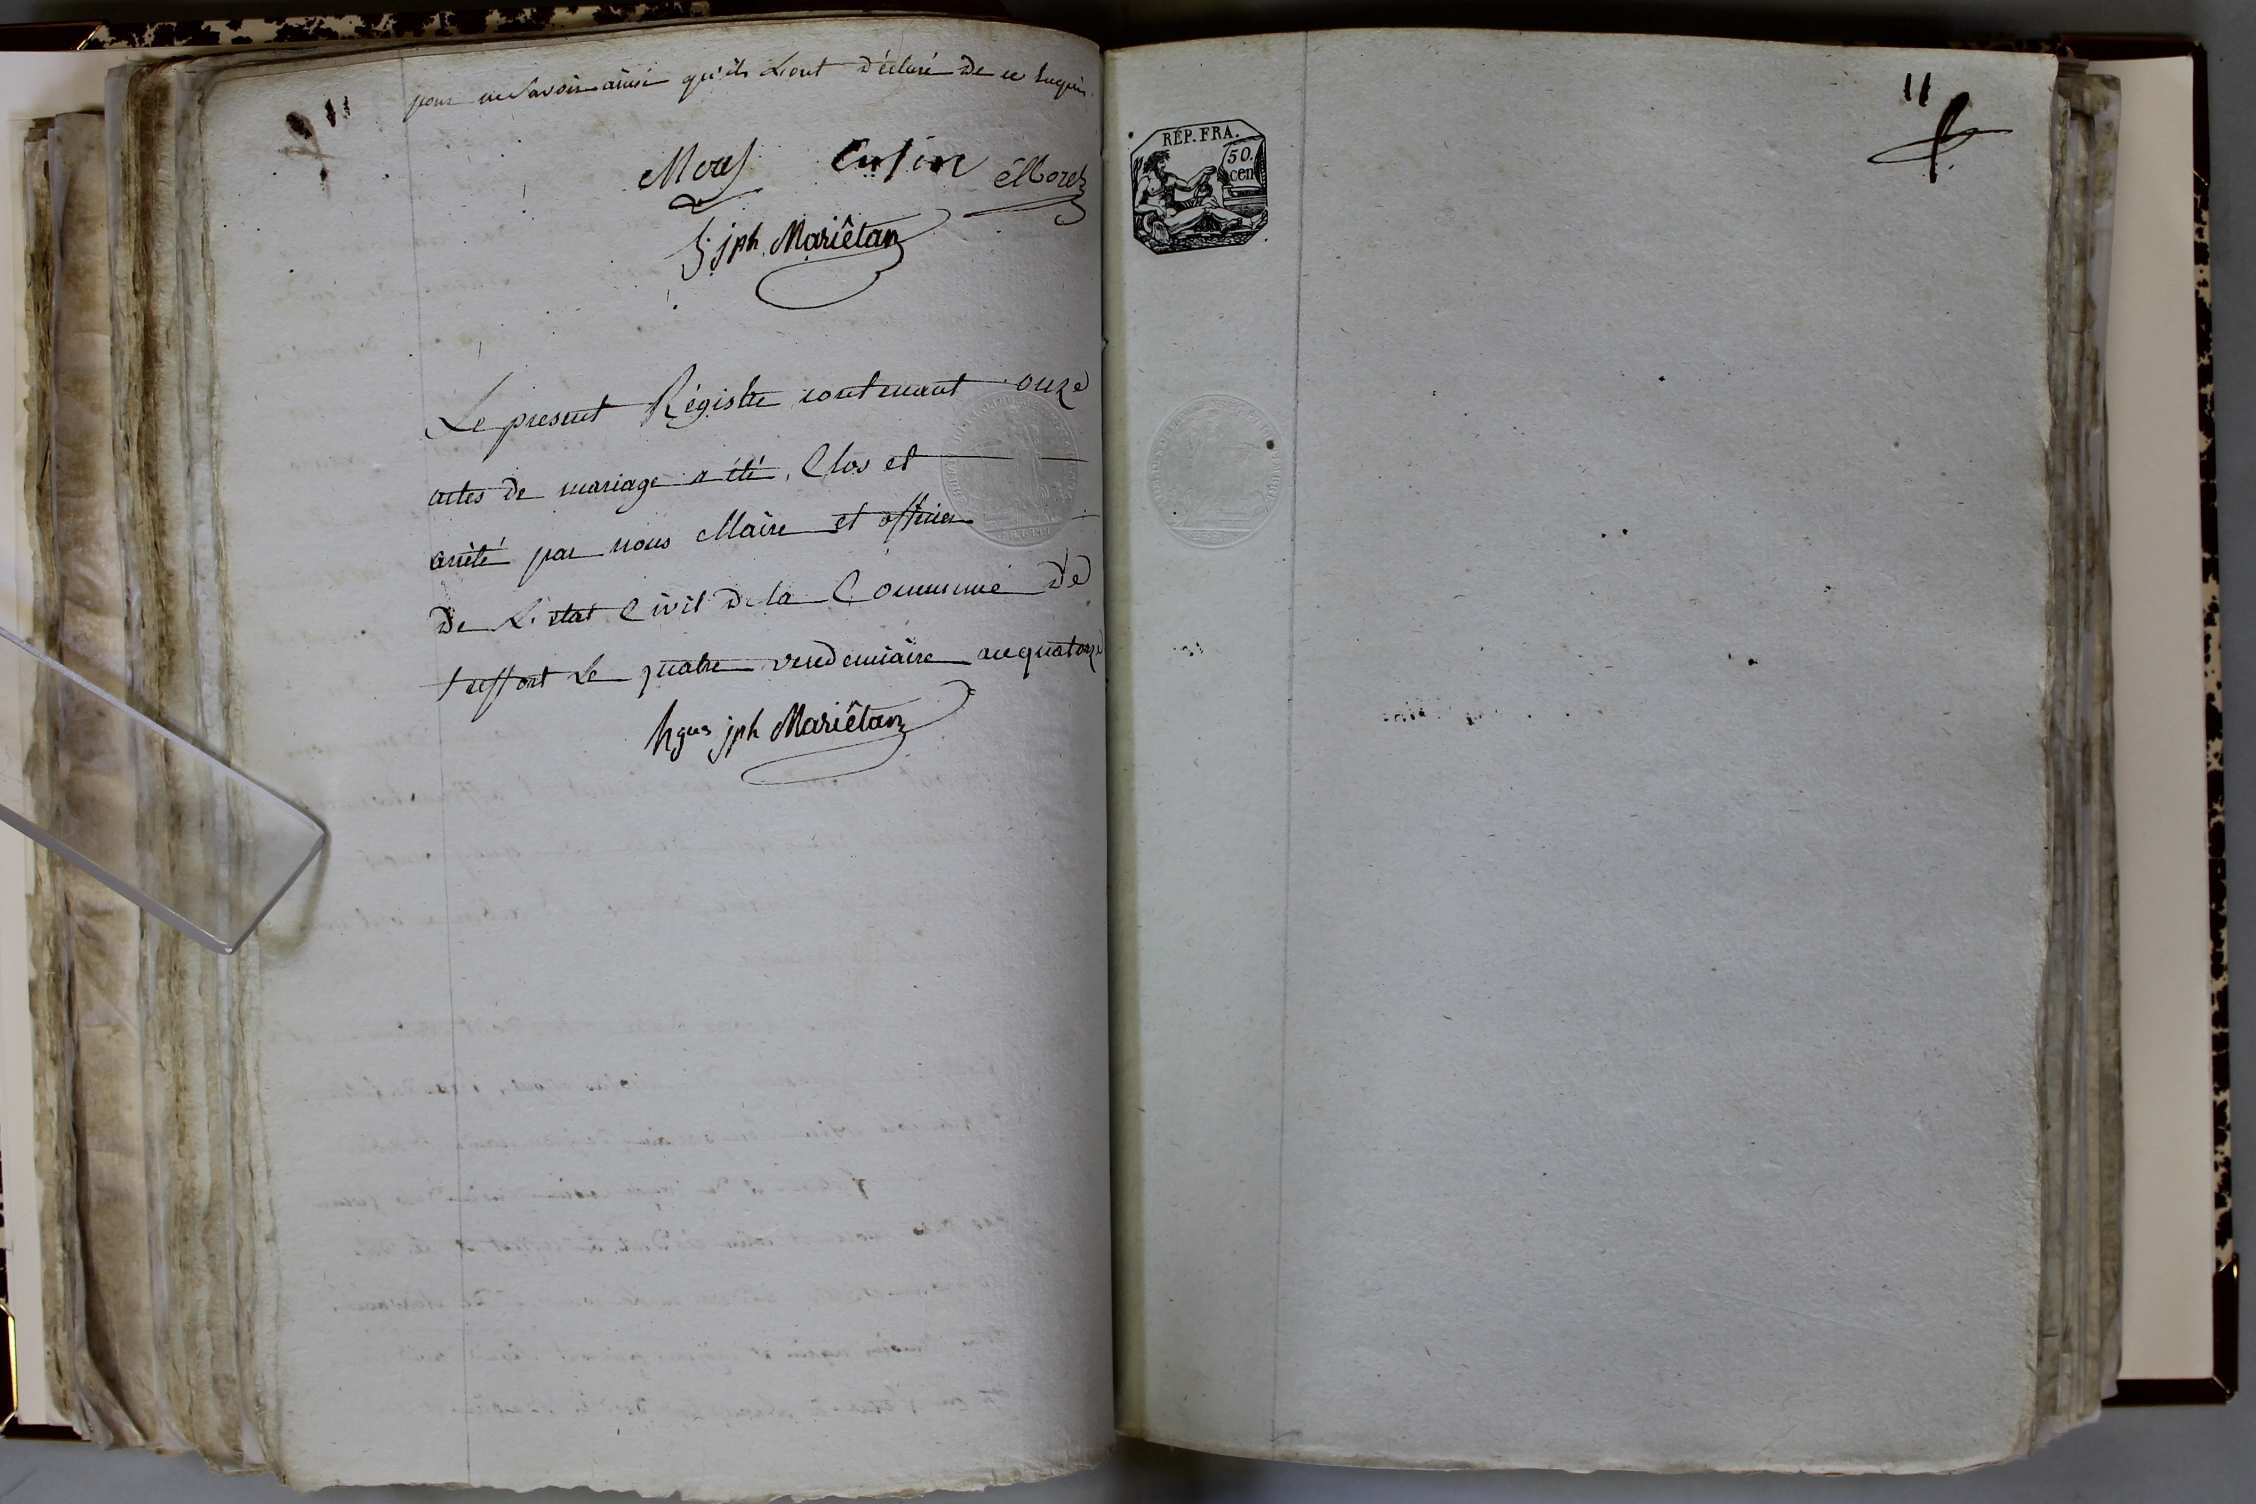 11
pour ne Savoir ainsi qu'ils L'ont déclaré de ce Enquis.
Morel Cusin Morel
h. jph Mariêtan
Le present Régistre contenant onze
actes de mariage a été, Clos et
arrêté par nous Maire et officier
de L'état Civil de la Commune de
treffort Le quatre vendemiaire an quatorze
hgues jph Mariêtan
11
RÉP. FRA.
50.
cen